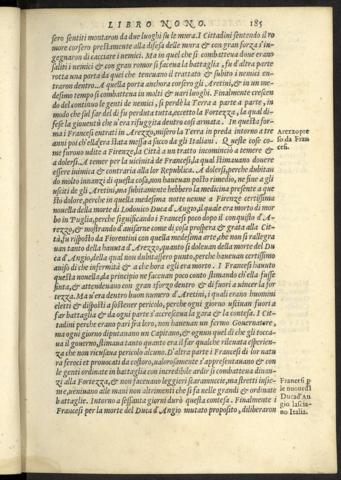 LIBRO NONO. 185
sero sentiti montaron da due luoghi su le mura. I Cittadini sentendo il ro
more corsero prestamente alla difesa delle mura & con gran forza s'in=
gegnaron di cacciare i nemici. Ma in quel che si combatteua doue erano
saliti i nemici & con gran romor si facena la battaglia, fu d'altra parte
rotta una porta da quei che teneuano il trattato & subito i nemici en=
traron dentro. A questa porta anchora corsero gli Aretini, & in un me=
desimo tempo si combatteua in molti & uari luoghi. Finalmente crescen
do del continuo le genti de nemici, si perdè la Terra a parte a parte, in
modo che sul far del dì fu perduta tutta, eccetto la Fortezza, la qual di=
fese la giouentù che u'era rifuggita dentro così armata. In questa for=
ma i Francesi entrati in Arezzo, misero la Terra in preda intorno a tre
anni poi ch'ell'era stata messa a sacco da gli Italiani. Queste cose co=
me furono udite a Firenze, la Città a un tratto incominciò a temere &
a dolersi. A temer per la uicinità de Francesi, la qual stimauano douere
essere inimica & contraria alla lor Republica. A dolersi, perche dubitan
do molto innanzi di questa cosa, non haueuan posto rimedio, ne fine a gli
usciti de gli Aretini, ma subitamente hebbero la medicina presente a que
sto dolore, perche in quella medesima notte uenne a Firenze certissima
nouella della morte di Lodouico Duca d'Angio, il quale era morto di mor
bo in Puglia, perche significando i Francesi poco dopo il conquisto d'A=
rezzo, & mostrando d'auisarne come di cosa prospera & grata alla Cit=
tà, fu risposto da Fiorentini con quella medesima arte, che non si rallegra
uan tanto della nuoua d'Arezzo, quanto si doleuan della morte del Du
ca d'Angio, della qual non dubitassero punto, perche haueuan certissimo
auiso di che infermità & a che hora egli era morto. I Francesi hauuto
questa nouella, da principio ne faceuan poco conto stimando ch'ella fusse
finta, & attendeuano con gran sforzo dentro & di fuori a uincer la for
tezza. Ma u'era dentro buon numero d'Aretini, i quali erano huomini
eletti & disposti a sostener pericolo, perche ogni giorno usciuan fuori a
far battaglia & da ogni parte s'accresceua la gara & la contesa. I Cit=
tadini perche eran pari fra loro, non haueuan un fermo Gouernatore,
ma ogni giorno diputauano un Capitano, & ognun quel dì che gli tocca=
ua il gouerno, stimaua tanto quanto era il far qualche rileuata esperien=
za che non ricusaua pericolo alcuno. D'altra parte i Francesi di lor natu
ra feroci et prouocati da costoro, ualorosamente s'appresentauano & con
le genti ordinate in battaglia con incredibile ardir si combatteua dinan=
zi alla Fortezza, & non faceuano leggieri scaramuccie, ma stretti insie=
me, ueniuano alle mani non altrimenti che si fa nelle grandi & ordinate
battaglie. Intorno a sessanta giorni durò questa contesa. Finalmente i
Francesi per la morte del Duca d'Angio mutato proposito, diliberaron
Arezzo pre
so da Fran
cesi.
Francesi p
le nuoue di
Duca d'An
gio lascia=
no Italia.